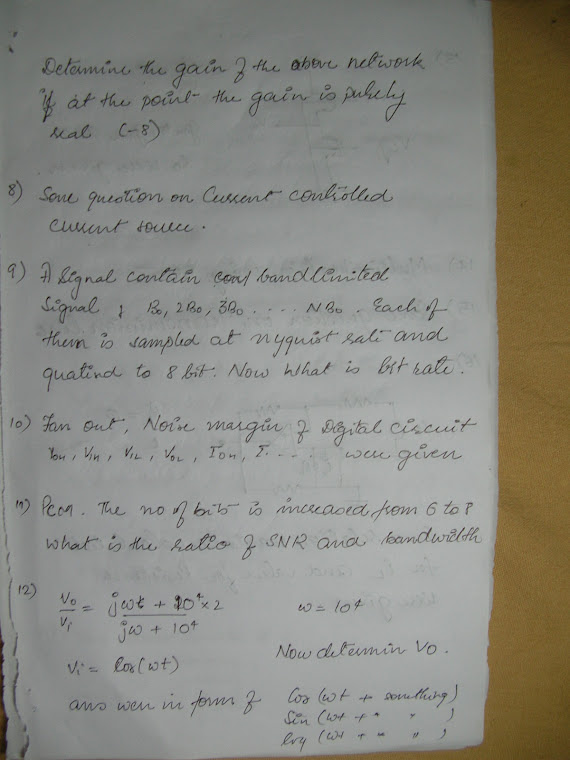 Determine the gain of the above network
if at the point the gain is purely
real (-8)
8) Some question on Current controlled
current source.
9) A Signal contain bandlimited
Signal ; B₀, 2B₀, 3B₀ ..... NB₀. Each of
them is sampled at nyquist rate and
quatind to 8 bit. Now what is bit rate.
10) Fan out, Noise margin of Digital circuit
VIH, VIL, VOL, IOH, I..... were given
11) PCM. The no of bits is increased from 6 to 8
what is the ratio of SNR and bandwidth
12) V₀/Vi = (jωt + 10⁴×2)/(jω + 10⁴) ω = 10⁴
Vi = Cos(ωt) Now determin V₀.
ans wer in form of Cos (ωt + something)
Sin (ωt + " " )
(ωt + " " )